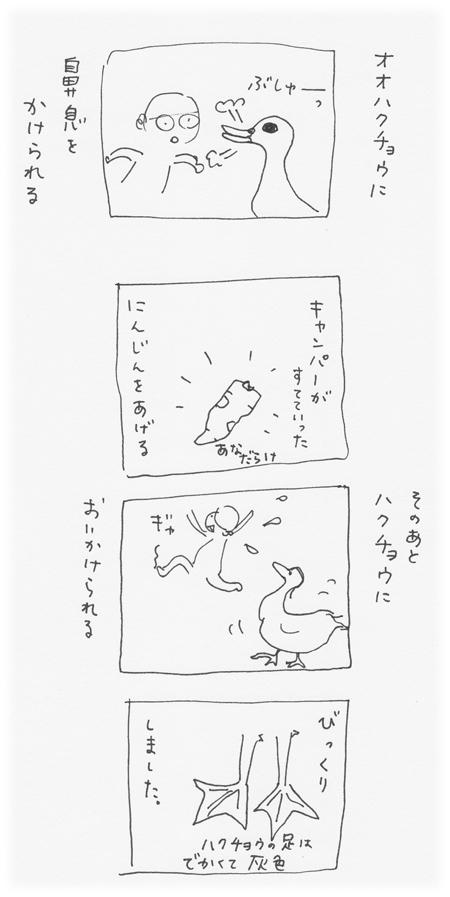 オオハクチョウに
ぶしゅーっ
鼻息を
かけられる
キャンパーが
すてていった
にんじんをあげる
あなだらけ
そのあと
ハクチョウに
ギャ
おいかけられる
びっくり
しました。
ハクチョウの足は
でかくて灰色